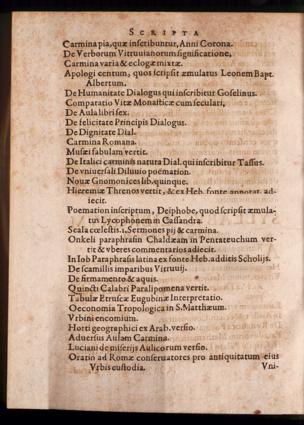 SCRIPTA
Carmina pia, quæ inscribuntur, Anni Corona.
De Verborum Vitruuianorum significatione,
Carmina varia & eclogæ mixtæ.
Apologi centum, quos scripsit æmulatus Leonem Bapt.
Albertum.
De Humanitate Dialogus qui inscribitur Goselinus.
Comparatio Vitæ Monasticæ cum seculari,
De Aula libri sex.
De felicitate Principis Dialogus.
De Dignitate Dial.
Carmina Romana.
Musæi fabulam vertit.
De Italici carminis natura Dial. qui inscribitur Tassus.
De vniuersali Diluuio poëmation.
Nouæ Gnomonices lib. quinque.
Hieremiæ Threnos vertit, & ex Heb. fonte annotat. ad-
iecit.
Poemation inscriptum, Deiphobe, quod scripsit æmula-
tus Lycophronem in Cassandra.
Scala cœlestis. 1. Sermones pij & carmina.
Onkeli paraphrasin Chaldæam in Pentateuchum ver-
tit & vberes commentarios adiecit.
In Iob Paraphrasis latina ex fonte Heb. additis Scholijs.
De scamillis imparibus Vitruuij.
De firmamento & aquis.
Quincti Calabri Paralipomena vertit.
Tabulæ Etruscæ Eugubinæ Interpretatio.
Oeconomia Tropologica in S. Matthæum.
Vrbini encomium.
Horti geographici ex Arab. versio.
Aduersus Aulam Carmina.
Luciani de miserijs Aulicorum versio.
Oratio ad Romæ conseruatores pro antiquitatum eius
Vrbis custodia.
Vni-